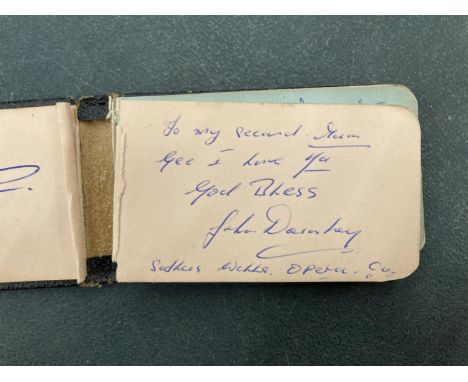 To my second Mum
Gee I love Ya
God Bless
John
Sadlers Wells. OPERA. Co.